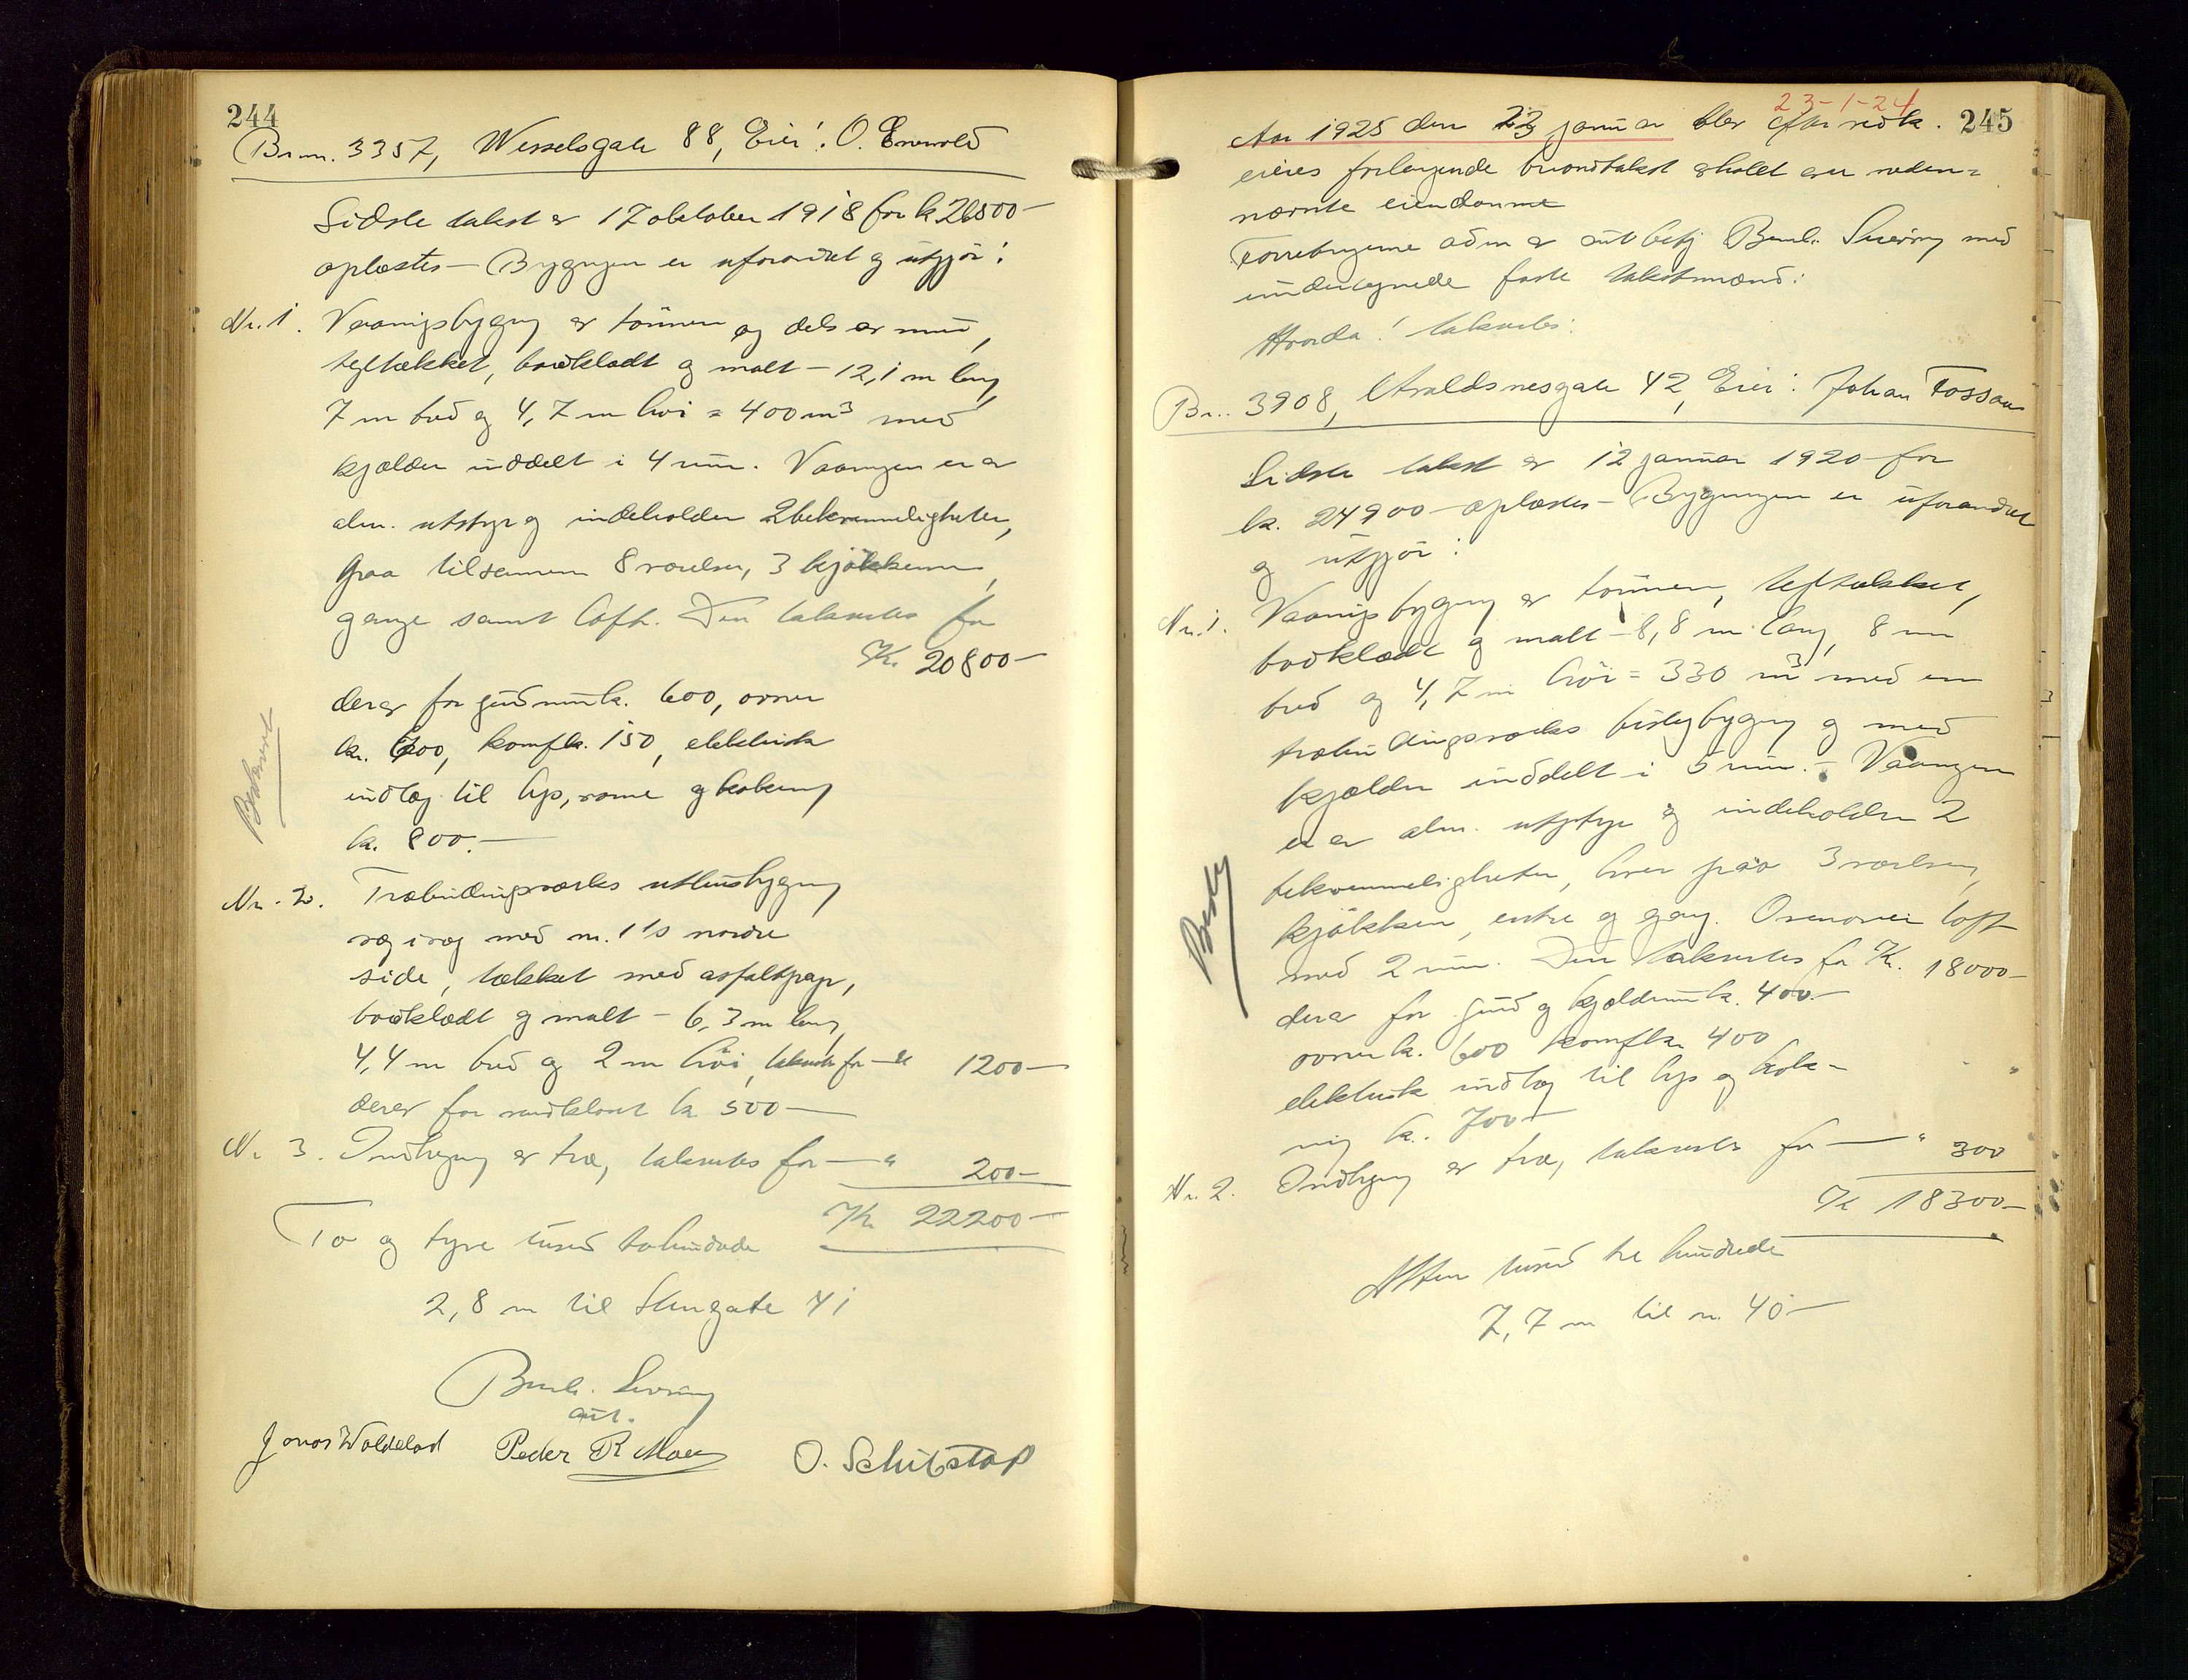 244
Br.nr. 3357, Wesselsgate 88, Eier: O. Enevold
Sidste takst er 17 oktober 1918 for k 26500 —
oplæstes — Bygngen er uforandret og utgjør:
Nr. 1. Vaanigsbygng av tømmer og dels av mur,
tegltækket, bordklædt og malt — 12,1 m lang
7 m bred og 4,7 m høi = 400 m³ med
kjælder inddelt i 4 rum. Vaangen er av
alm. utstyr og indeholder 2 bekvemmeligheter,
paa tilsammen 8 værelser, 3 kjøkkener,
gange samt loft. Den takseres for
Kr. 20800 —
derav for grundmur k. 600, ovner
kr. 600, komfk. 150, elektrisk
indlæg til lys, varme og kokning
kr. 800. —
Beskrevet
Nr. 2. Træbindingsværks uthusbygng
væg i væg med nr. 1's nordre
side, tækket med asfaltpap,
bordklædt og malt — 6,3 m lang,
4,4 m bred og 2 m høi, takseres for — " 1200 —
derav for vandkloset k 500 —
Nr. 3. Indhegng av træ, takseres for — " 200 —
Kr 22200 —
To og tyve tusend tohundrede
2,8 m til Stengate 41
Bernh.
aut.
Jonas Woldstad Peder R Moen O. Schibstap
23-1-24
245
Aar 1925 den 23 januar blev efter vedk.
eieres forlangende brandtakst avholdt over neden=
nævnte eiendomme
Forretngene adm av aut besty Bernh. med
undertegnede faste takstmænd:
Hvorda! takseredes:
Br.. 3908, Avaldsnesgate 42, Eier: Johan Fossan
Sidste takst er 12 januar 1920 for
kr. 24900 — oplæstes — Bygngen er uforandret
og utgjør:
Nr. 1. Vaanigsbygng av tømmer, tegltækket,
bordklædt og malt — 8,8 m lang, 8 m
bred og 4,7 m høi = 330 m³ med en
træbindingsværks bislagbygng og med
kjælder inddelt i 5 rum. — Vaangen
er av alm. utstyr og indeholder 2
bekvemmeligheter, hver paa 3 værelser,
kjøkken, entre og gang. Ovenover loft
med 2 rum. Den takseres for Kr. 18000 —
derav for grund og kjældermur k. 400. —
ovner k. 600 komfk. 400
elektrisk indlæg til lys og kok-
ning k. 700 —
Nr. 2. Indhegng av træ, takseres for — " 300
Kr 18300 —
Atten tusend tre hundrede
7,7 m til nr. 40 —